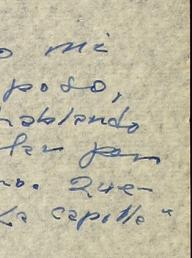 o mi
poso,
hablando
lar por
no. Que-
La capilla"